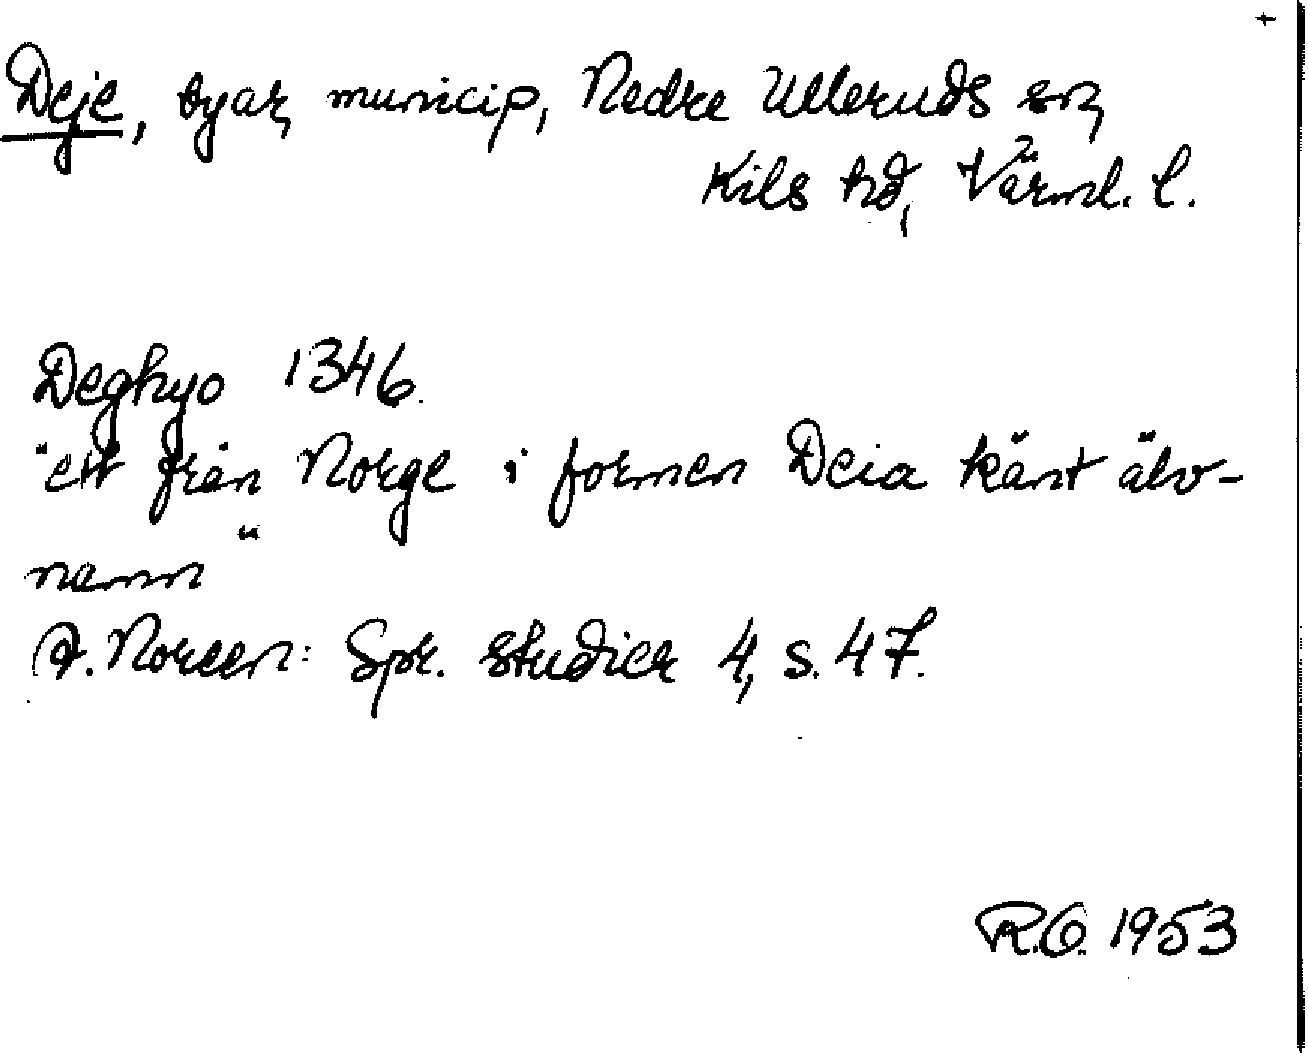 +
Deje, byar, municip, Nedre Ulleruds sn,
Kils hd, Värml. l.
Deghyo 1346.
"ett från Norge i formen Deia känt älv-
namn"
A. Noreen: Spr. studier 4, s. 47.
R.O. 1953